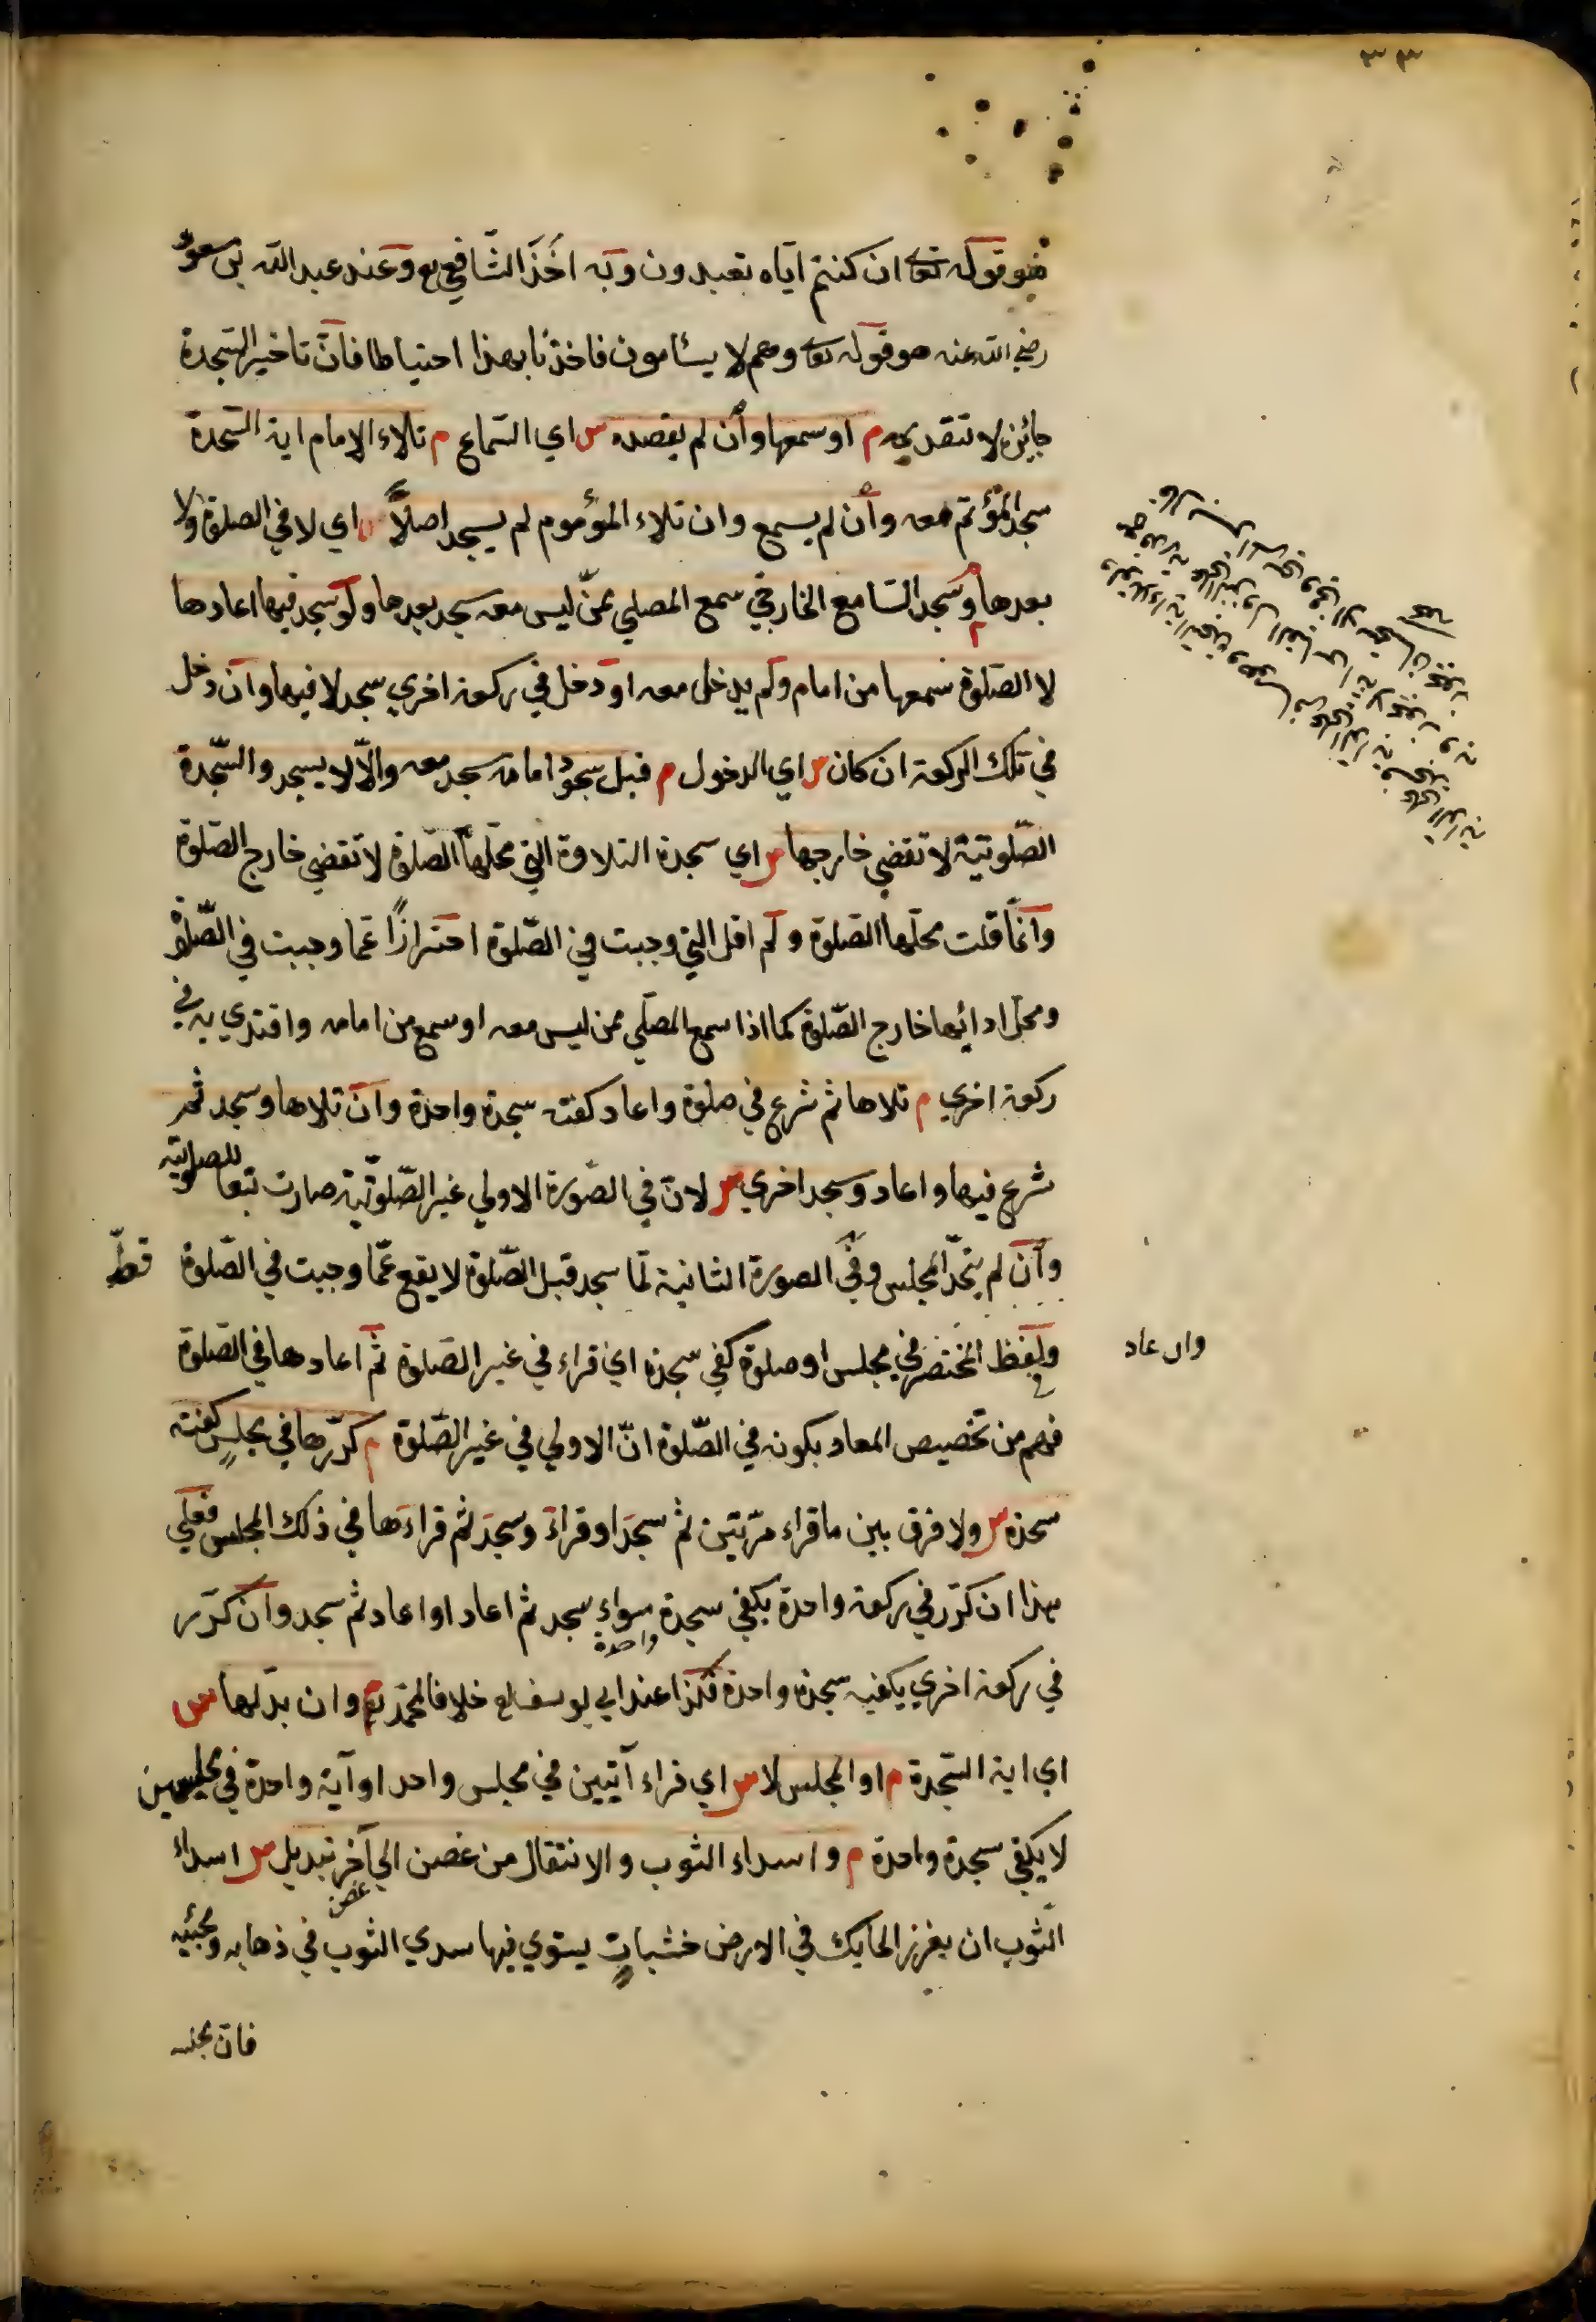 ٣٣
هو قوله تعا ان كنتم اياه تعبدون وبه اخذ الشافعي رح وعند عبد الله بن مسعود
رضي الله عنه هو قوله تعا وهم لا يسئامون فاخذنا بهذا احتياطا فان تاخير السجدة
جايز لا تقديمه م او سمعها وان لم يقصده س اي السماع م تلاء الامام اية السجدة
سجد المؤتم معه وان لم يسمع وان تلاء المؤموم لم يسجد اصلاً س اي لا في الصلوة ولا
بعدها م وسجد السامع الخارجي سمع المصلي عمن ليس معه سجد بعدها ولو سجد فيها اعادها
لا الصلوة سمعها من امام ولم يدخل معه او دخل في ركعة اخري سجد لا فيها وان دخل
في تلك الركعة ان كان س اي الدخول م قبل سجود امامه سجد معه والّا لا يسجد والسّجدة
الصّلوتية لا تقضي خارجها س اي سجدة التلاوة التي محلها الصّلوة لا تقضي خارج الصّلوة
وانّما قلت محلها الصّلوة ولم اقل التي وجبت في الصّلوة احترازًا عما وجبت في الصّلوة
ومحل ادائها خارج الصّلوة كما اذا سمع المصلي ممن ليس معه او سمع من امامه واقتدي به في
ركعة اخري م تلاها ثم شرع في صلوة واعاد كفته سجدة واحدة وان تلاها وسجد ثم
شرع فيها واعاد وسجد اخري س لان في الصّورة الاولي غير الصّلوتية صارت تبعا للصلوتية
وان لم يتحد المجلس وفي الصورة الثانية لما سجد قبل الصّلوة لا يقع عمّا وجبت في الصّلوة قطّ
ولفظ المختصر في مجلس او صلوة كفي سجدة اي قراء في غير الصّلوة ثم اعادها في الصّلوة
وان عاد
فهم من تخصيص المعاد بكونه في الصّلوة انّ الاولي في غير الصّلوة م كرّرها في مجلسٍ كفته
سجدة س ولا فرق بين ما قراء مرّتين ثم سجد او قراء وسجد ثم قراءها في ذلك المجلس فعلي
هذا ان كرّر في ركعة واحدة يكفي سجدة واحدة سواء سجد ثم اعاد او اعاد ثم سجد وان كرّر
في ركعة اخري يكفيه سجدة واحدة هكذا عند ابي يوسف رح خلافا لمحمّد رح م وان بدّلها س
اي اية السّجدة م او المجلس لا س اي قراء آيتين في مجلس واحد او آية واحدة في مجلسين
لا يكفي سجدة واحدة م واسداء الثوب والانتقال من غصن الي آخر غصن تبديل س اسداء
الثوب ان يغرز الحايك في الارض خشباتٍ يستوي فيها سدي الثوب في ذهابه ومجيئه
فان مجلسه